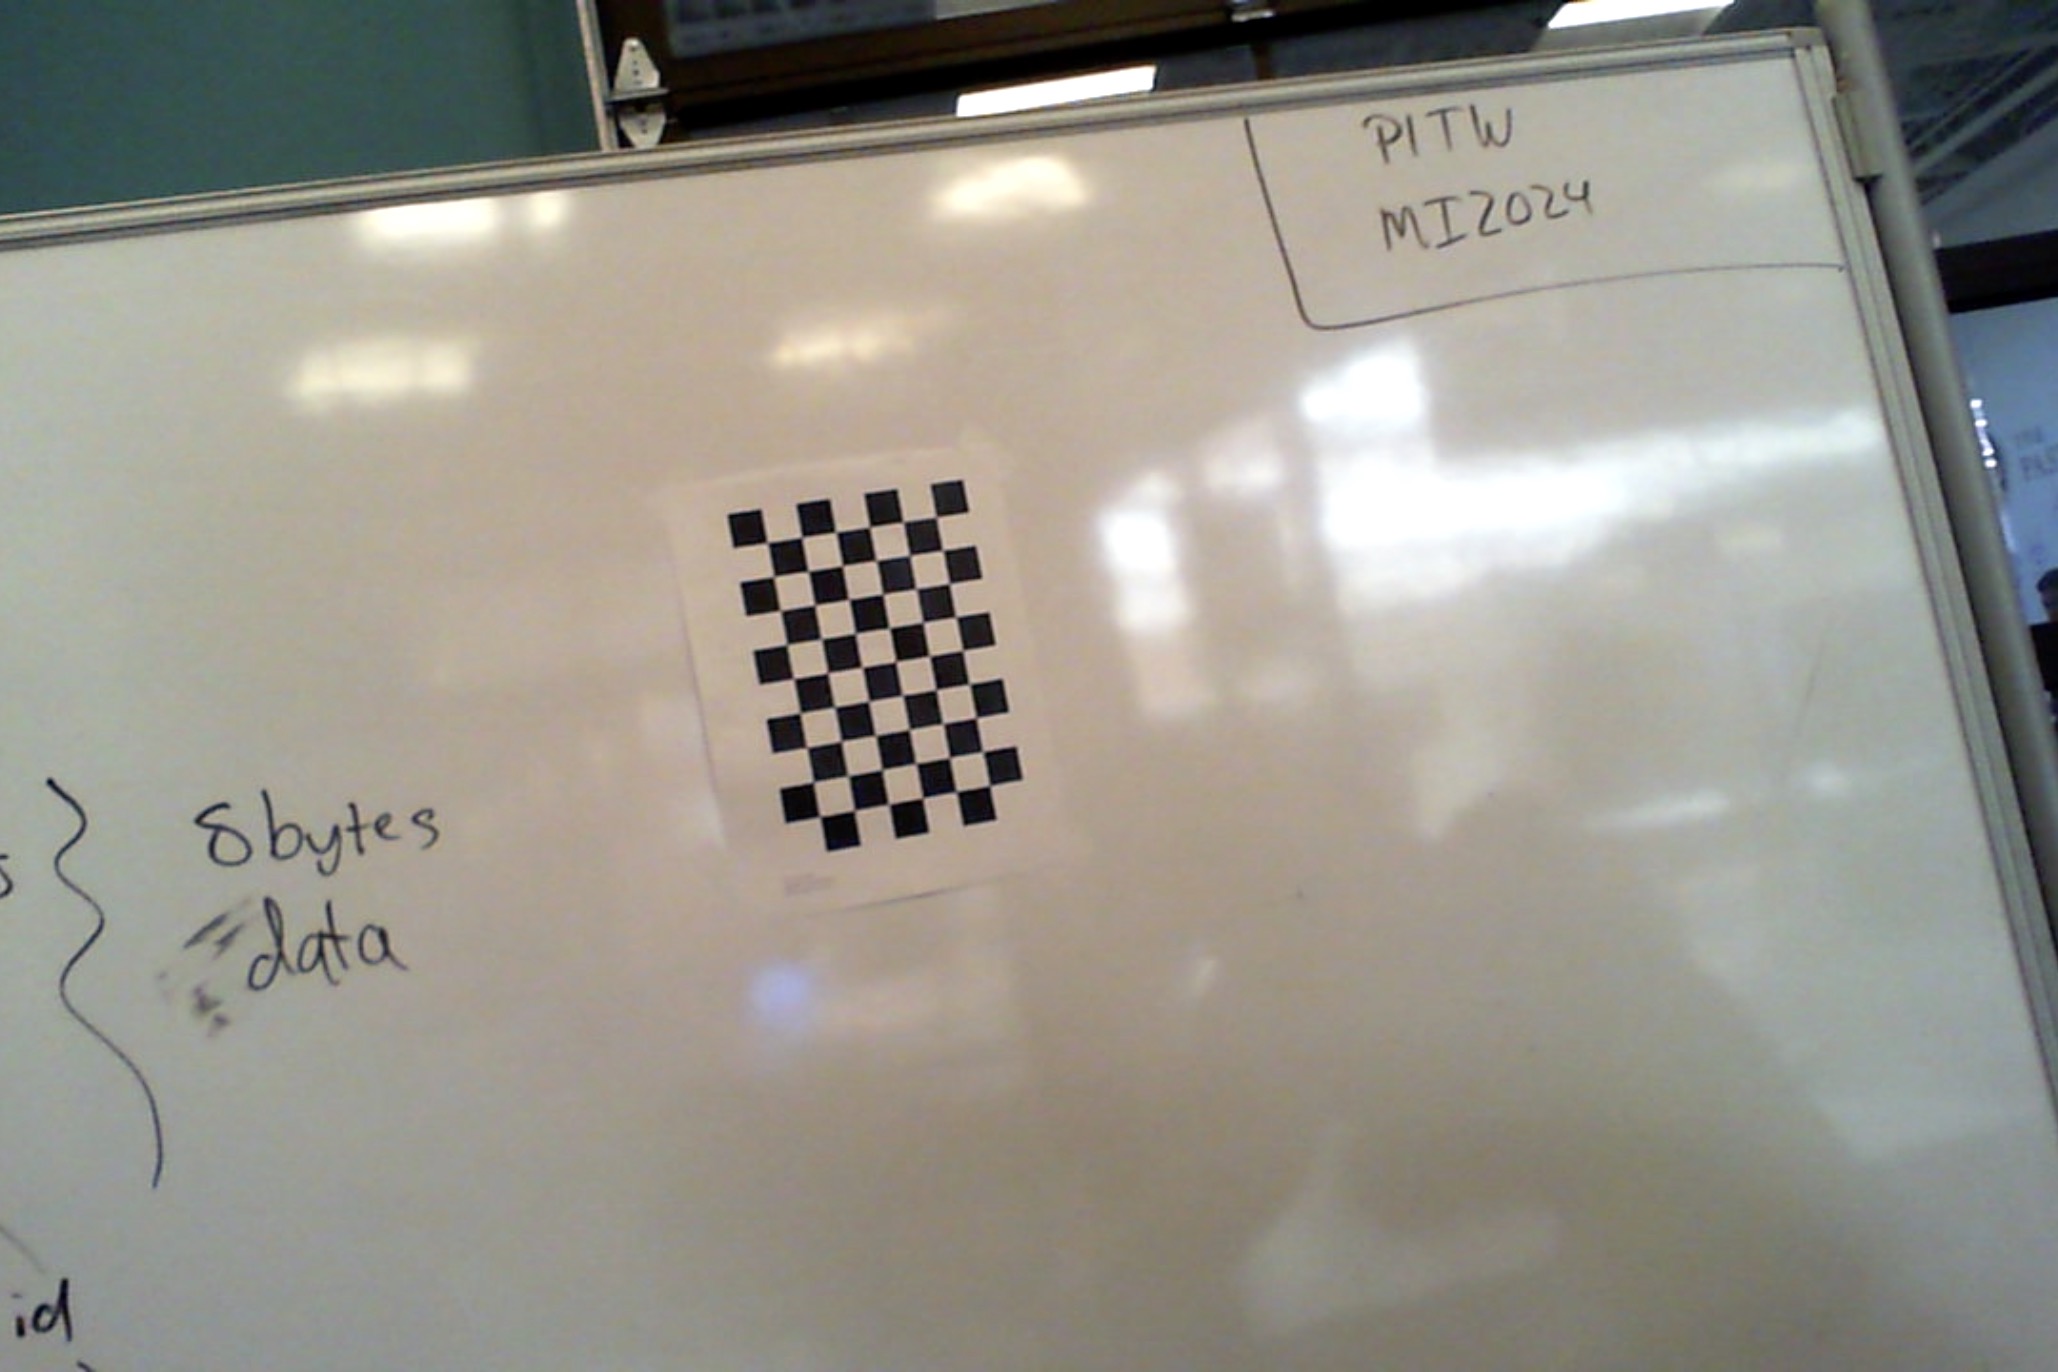 PITW
MI2024
8bytes
data
id